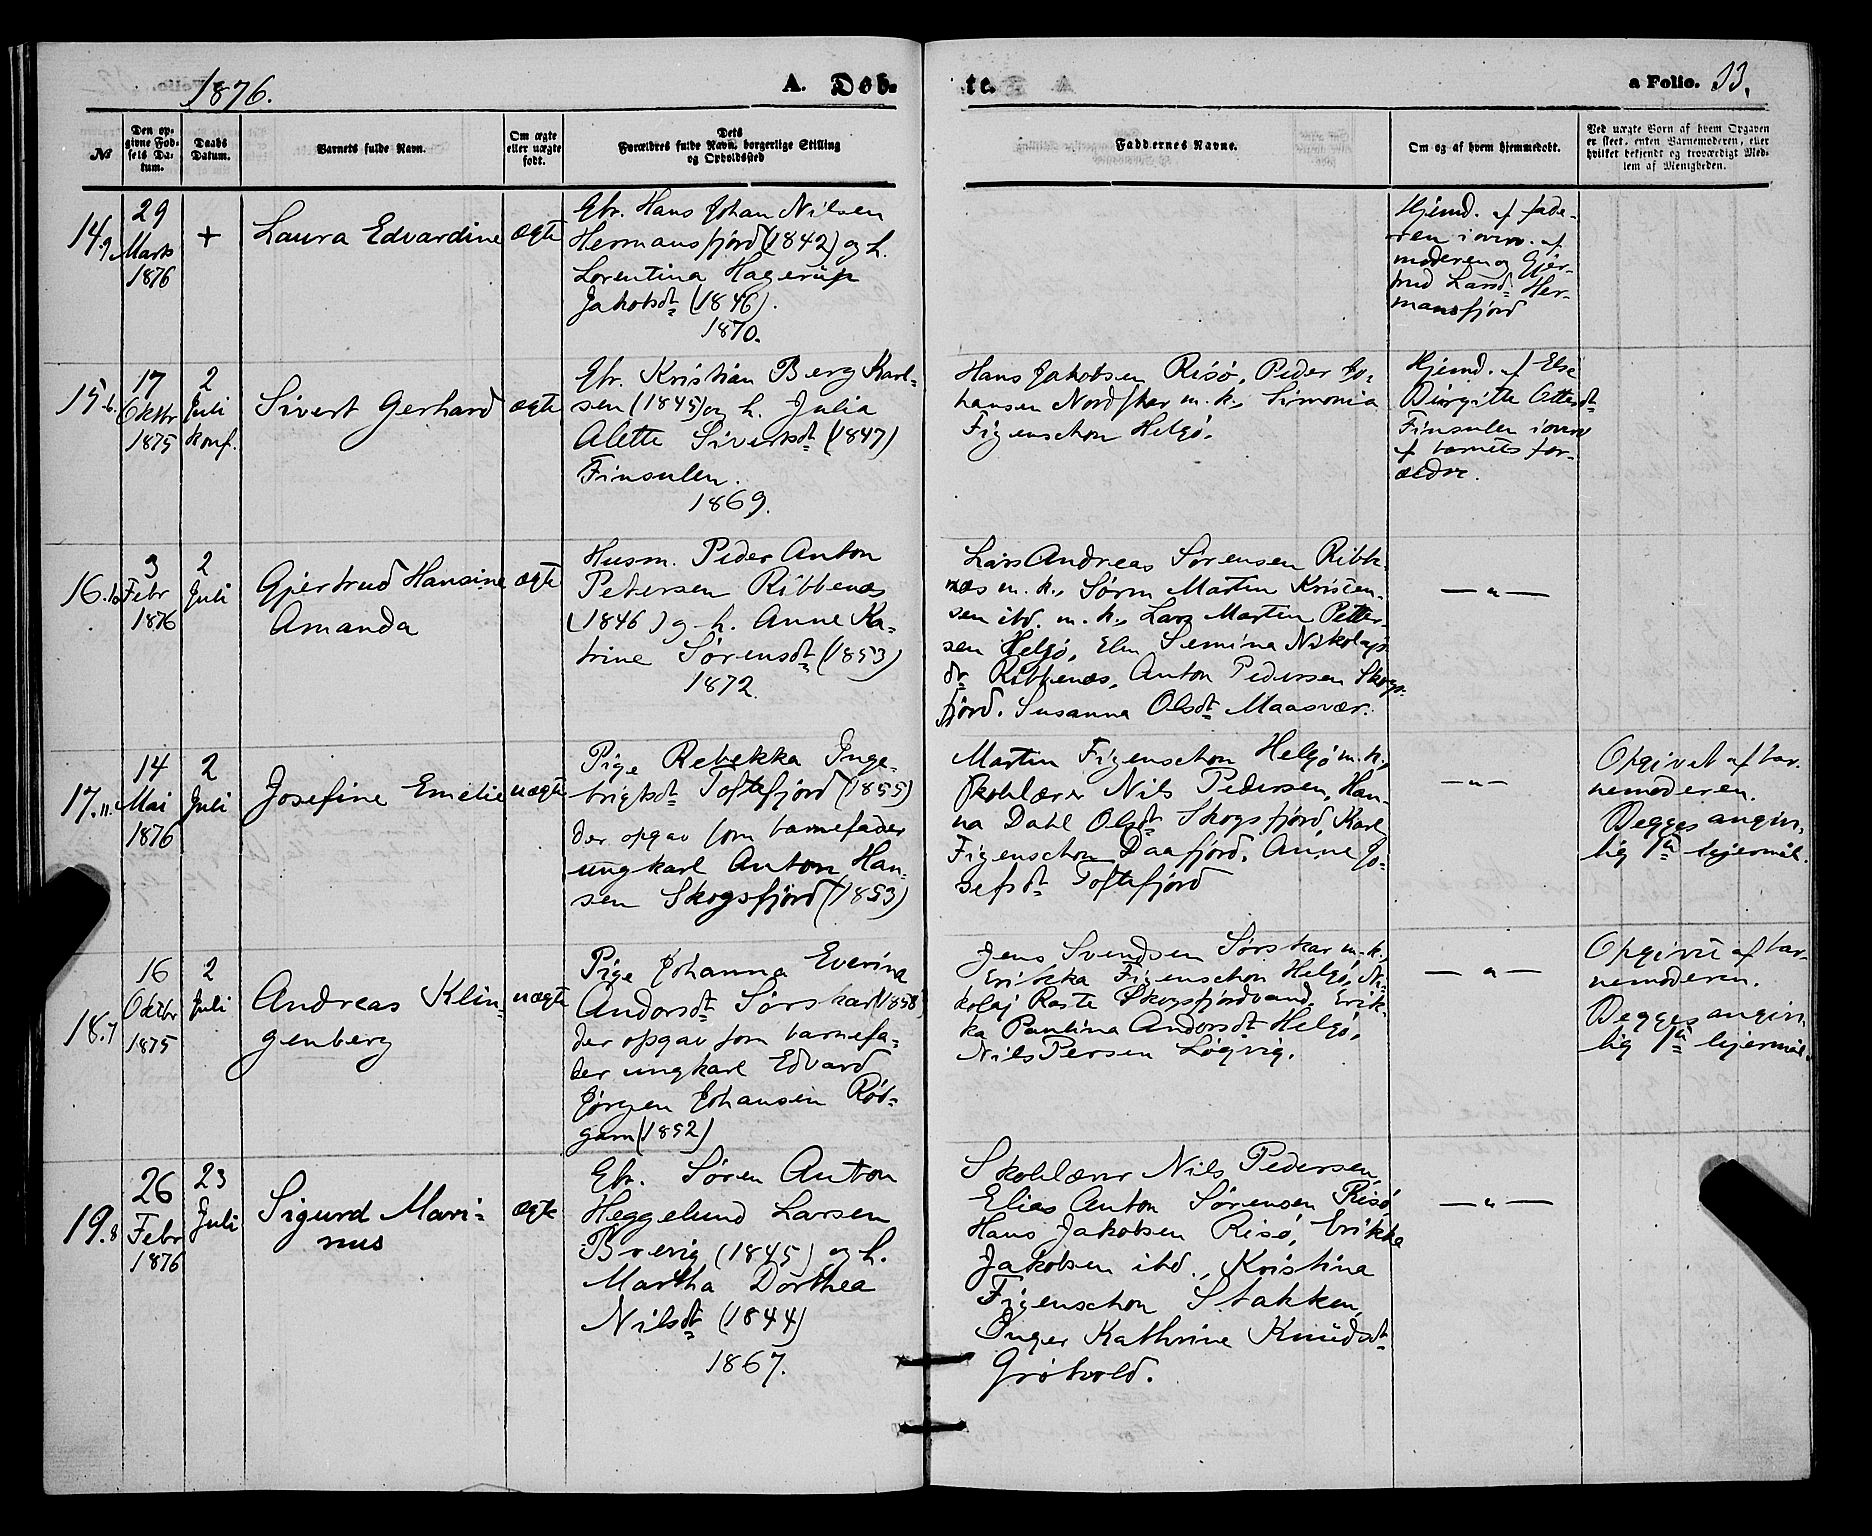 1876.
A. Døb-
te.
a Folio. 33.
№
Den op-
givne Fød-
sels Da-
tum.
Daabs
Datum.
Barnets fulde Navn.
Om ægte
eller uægte
født.
Dets
Forældres fulde Navn, borgerlige Stilling
og Opholdssted
Faddernes Navne.
Om og af hvem hjemmedøbt.
Ved uægte Børn af hvem Opgaven
er skeet, enten Barnemoderen, eller
hvilket bekjendt og troværdigt Med-
lem af Menigheden.
14.9
29
Marts
1876
+
Laura Edvardine
ægte
Gbr. Hans Johan Nilsen
Hermansfjord (1842) og h.
Lorentina Hagerup
Jakobsdt (1846).
1870.
Hjemd. af fade-
ren i overv. af
moderen og Gjer-
trud Larsd. Her-
mansfjord
15.6.
17
Oktbr
1875
2
Juli
konf.
Sivert Gerhard
ægte
Gbr. Kristian Berg Karl-
sen (1845) og h. Julia
Alette Sivertsdt (1847)
Finsulen.
1869.
Hans Jakobsen Risø, Peder Jo-
hansen Nordskar m. k., Simonia
Figenschou Helgø.
Hjemd. af Else
Birgitte Ottersdt
Finsulen i overv
af barnets for-
ældre.
16.10
3
Febr
1876
2
Juli
Gjertrud Hansine
Amanda
ægte
Husm. Peder Anton
Petersen Ribbenæs
(1846) og h. Anne Ka-
trine Sørensdt (1853)
1872.
Lars Andreas Sørensen Ribbe-
næs m. k., Søren Martin Kristen-
sen ibd. m. k., Lars Martin Petter-
sen Helgø, Elen Semina Nikolajs-
dt Ribbenæs, Anton Pedersen Skogs-
fjord. Susanna Olsdt Maasvær.
— „ —
17.11.
14
Mai
1876
2
Juli
Josefine Emelie
uægte
Pige Rebekka Inge-
brigtsdt Toftefjord (1855)
der opgav som barnefader
ungkarl Anton Han-
sen Skogsfjord (1853)
Martin Figenschou Helgø m. k.,
Skolelærer Nils Pedersen, Han-
na Dahl Olsdt Skogsfjord, Karl
Figenschou Daafjord. Anne Jo-
sefsdt Toftefjord
— „ —
Opgivet af bar-
nemoderen.
Begges angiv-
lig 1ste lejermål.
18.7
16
Oktbr
1875
2
Juli
Andreas Klin-
genberg
uægte
Pige Johanna Everina
Andorsdt Sørskar (1858)
der opgav som barnefa-
der ungkarl Edvard
Jørgen Johansen Rød-
gam (1852)
Jens Svendsen Sørskar m. k.,
Erikka Figenschou Helgø, Ni-
kolaj Raste Skogsfjordvand, Erik-
ka Paulina Andorsdt Helgø,
Nils Persen Løgvig.
— „ —
Opgivet af bar-
nemoderen.
Begges angiv-
lig 1ste lejermål.
19.8
26
Febr
1876
23
Juli
Sigurd Mari-
nus
ægte
Gbr. Søren Anton
Heggelund Larsen
Brevig (1845) og h.
Martha Dorthea
Nilsdt (1844)
1867.
Skolelærer Nils Pedersen,
Elias Anton Sørensen Risø,
Hans Jakobsen Risø, Erikke
Jakobsen ibd., Kristina
Figenschou Stakken,
Inger Kathrine Knudsdt
Grøtvold.
— „ —